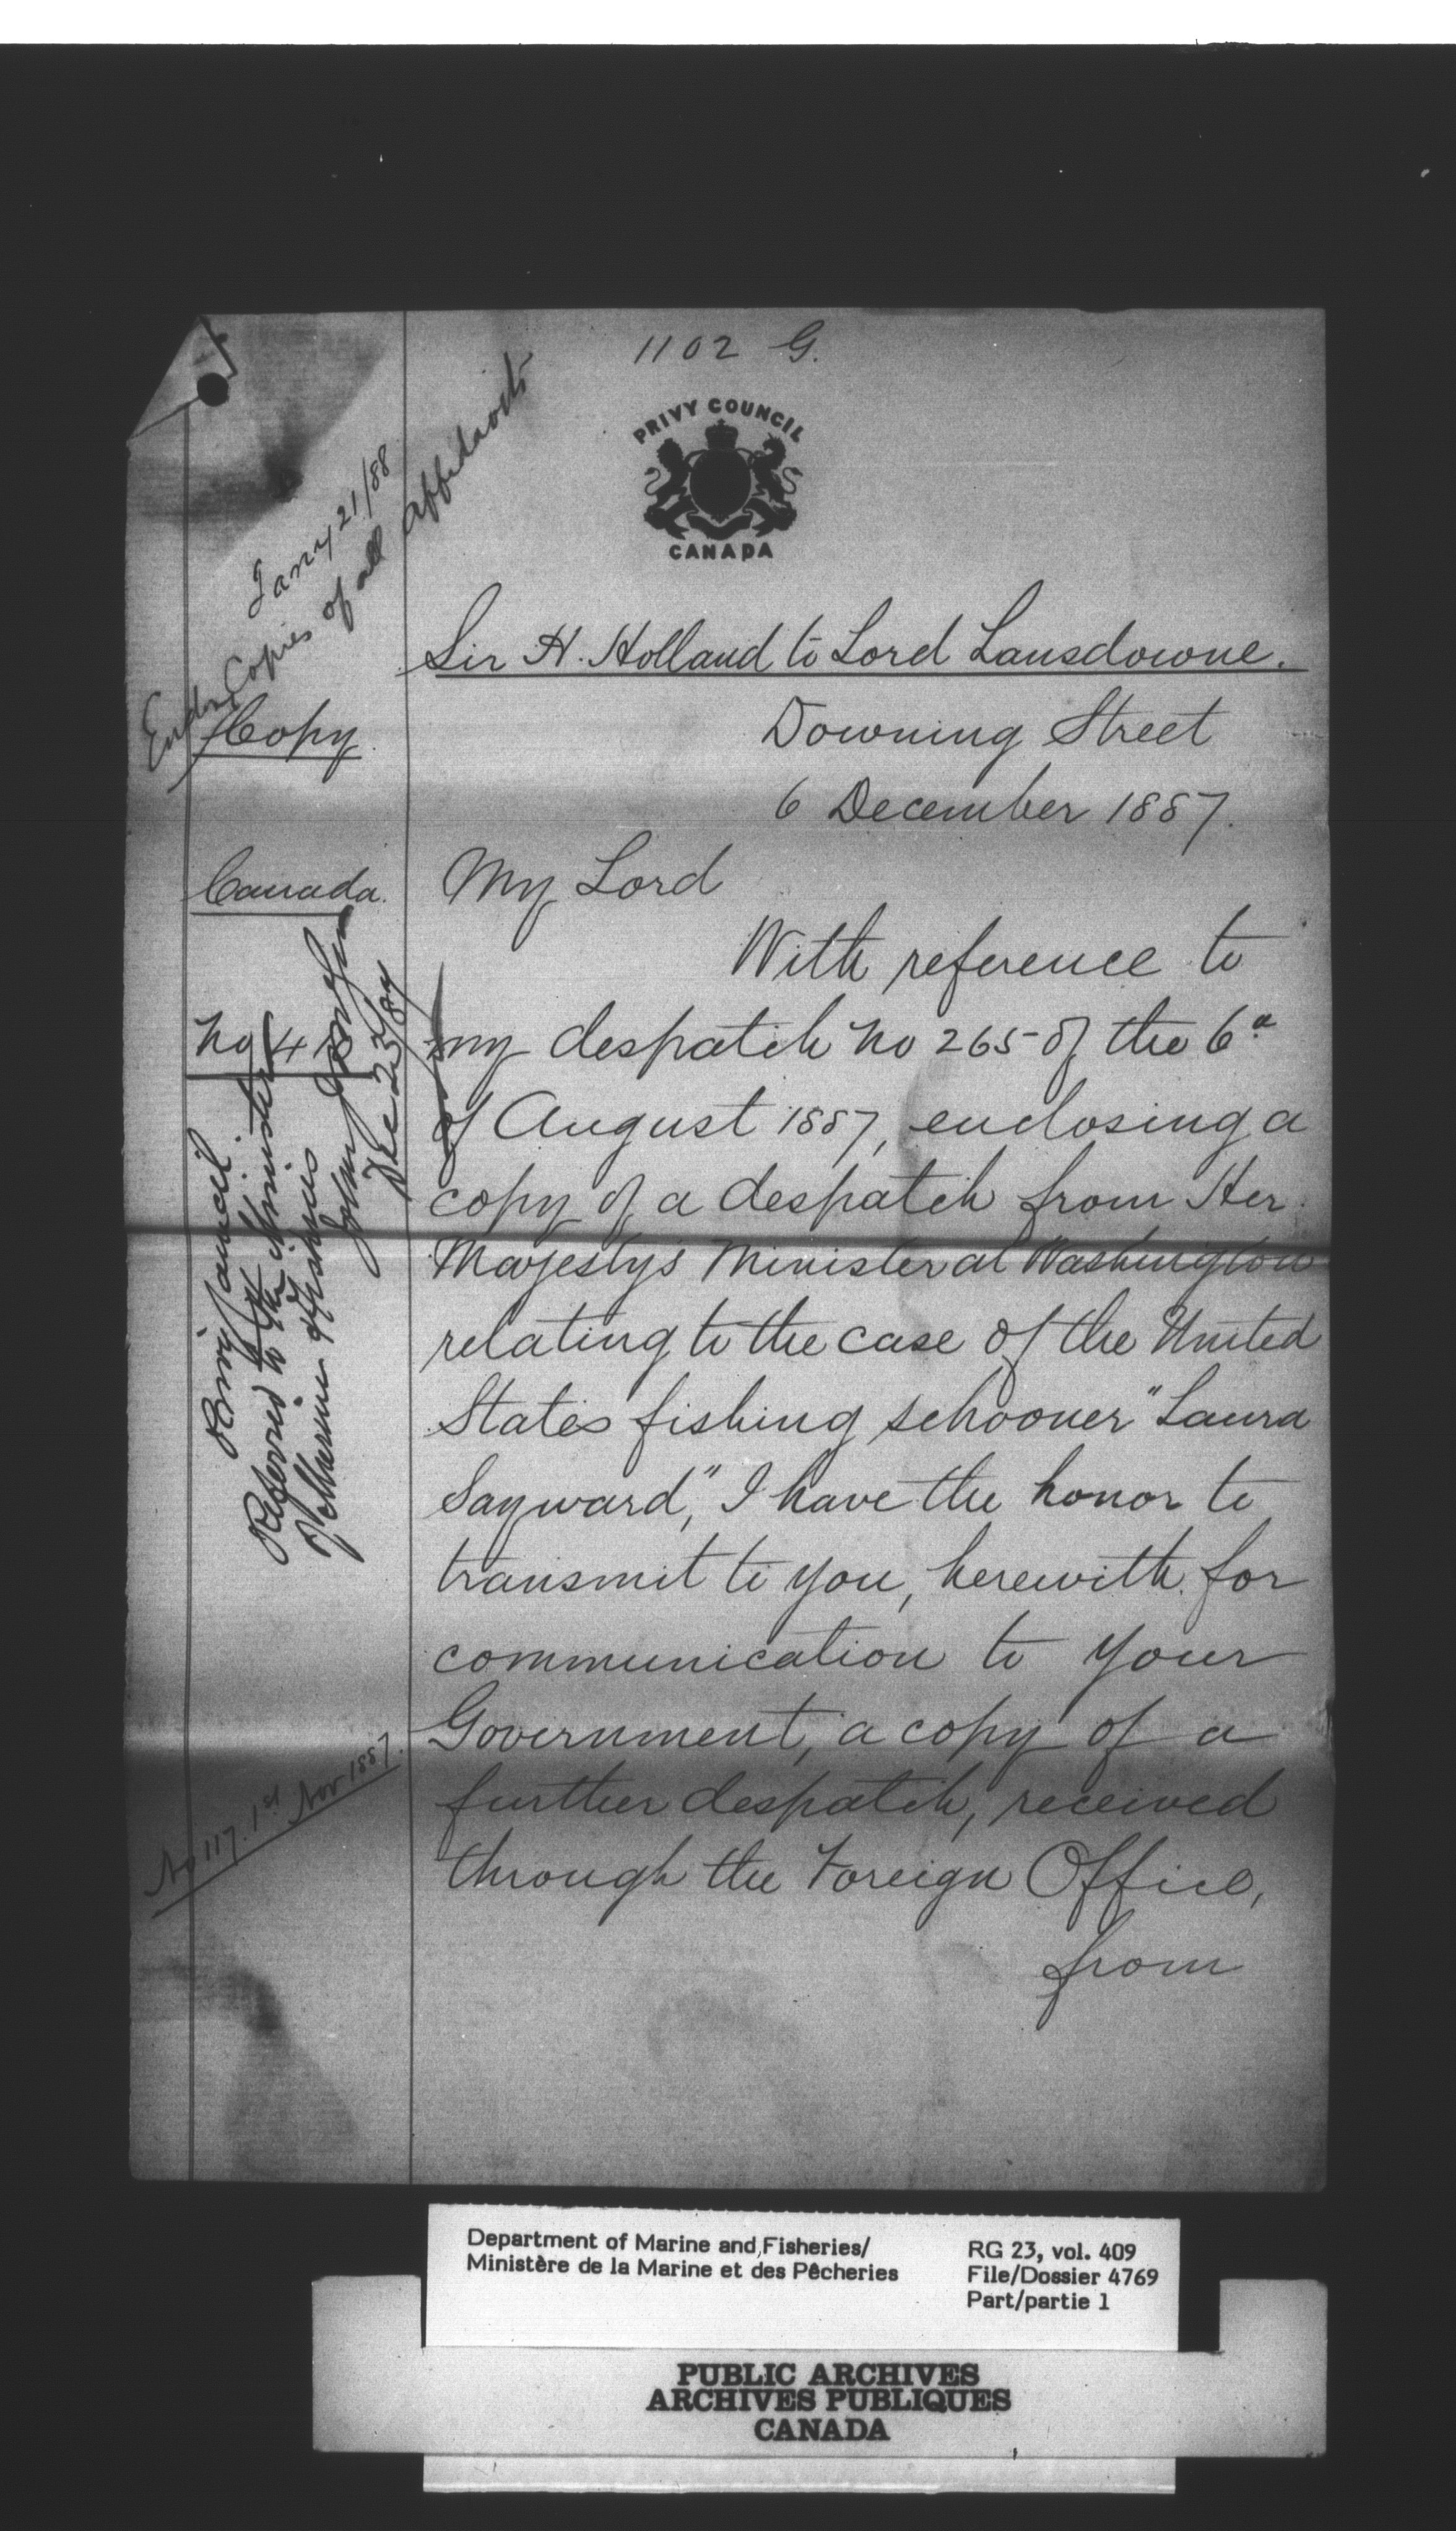 1102 G.
PRIVY COUNCIL
CANADA
Jany 21/88
Copies of all affidavits
Sir H. Holland to Lord Lansdowne.
Copy
Downing Street
6 December 1887.
Canada.
My Lord
With reference to
my despatch No 265 of the 6th
of August 1887, enclosing a
copy of a despatch from Her
Majesty's Minister at Washington
relating to the case of the United
States fishing schooner "Laura
Sayward," I have the honor to
transmit to you, herewith for
communication to your
Government, a copy of a
further despatch, received
through the Foreign Office,
from
No 4
Privy Council
Referred to the Minister
of Marine & Fisheries
Dec 23/87
No 117. 1st Nov 1887.
Department of Marine and Fisheries/
Ministère de la Marine et des Pêcheries
RG 23, vol. 409
File/Dossier 4769
Part/partie 1
PUBLIC ARCHIVES
ARCHIVES PUBLIQUES
CANADA